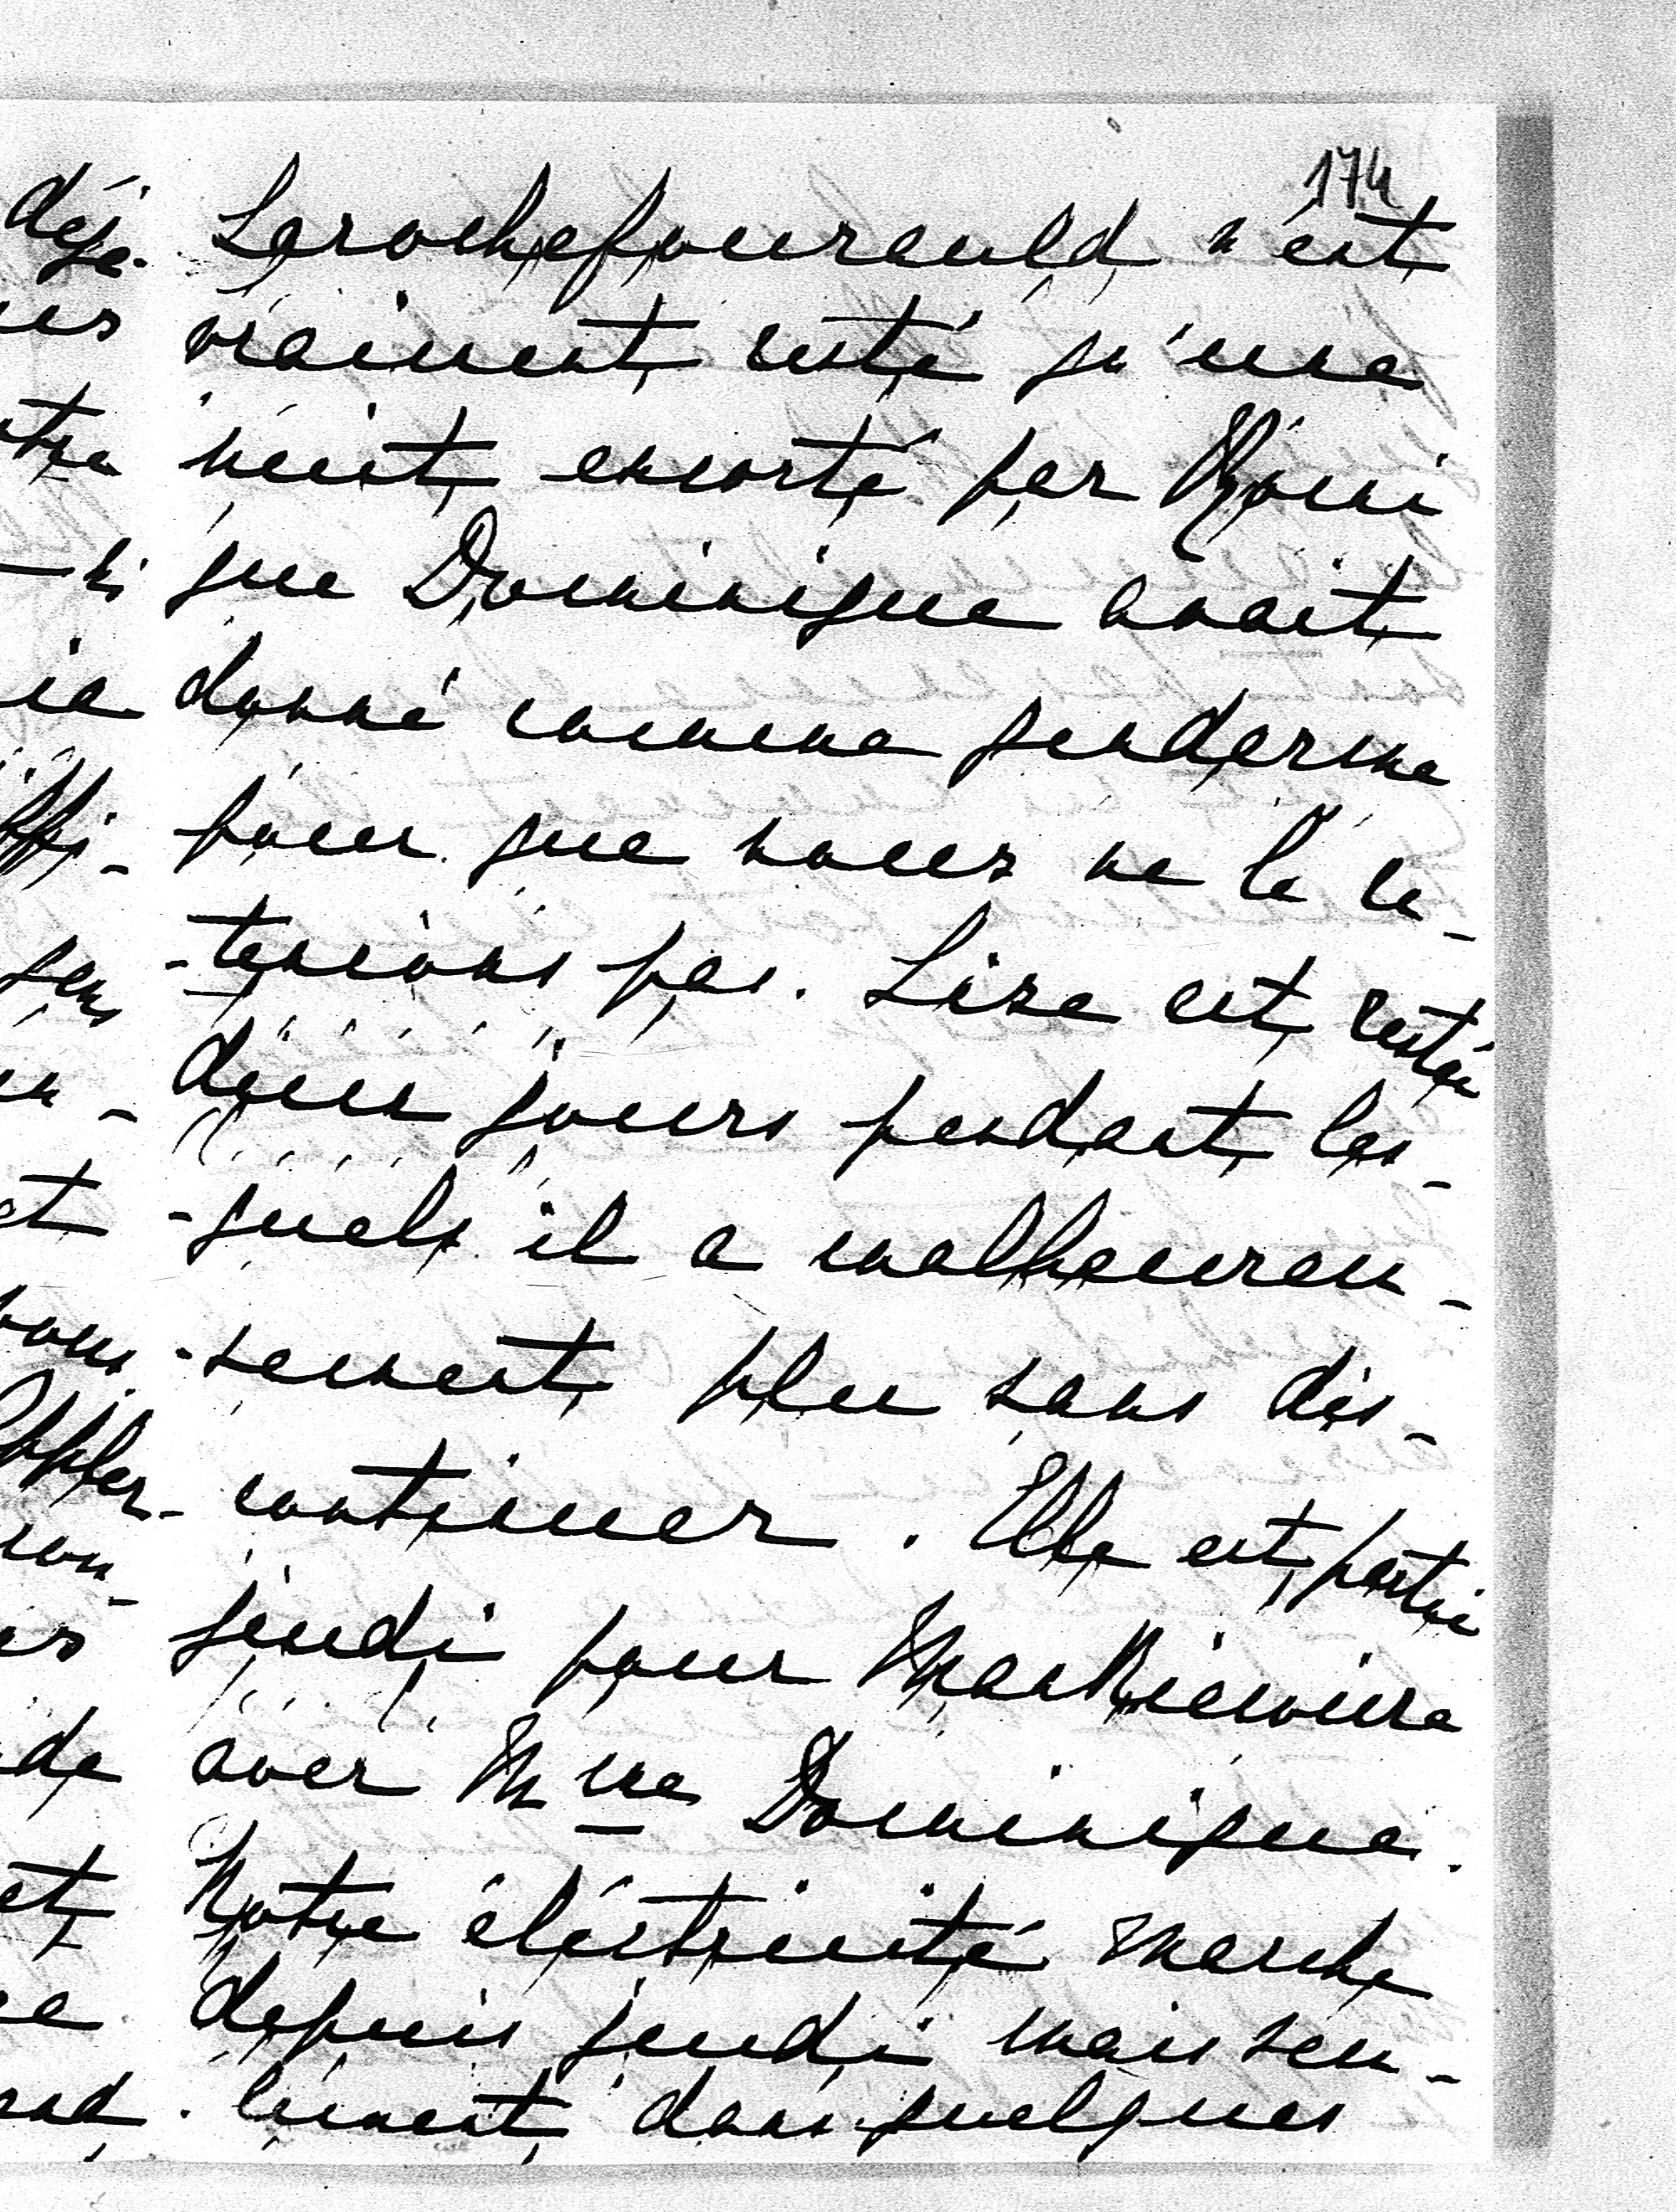 174
Larochefoucauld n'est
vraiment resté qu'une
nuit escorté par
que Dominique avait
donné comme gendarme
pour que nous ne le re-
-tenions pas. Lise est restée
deux jours pendant les-
-quels il a malheureu-
-sement plu sans dis-
continuer. Elle est partie
jeudi pour
avec Mme Dominique.
Notre éléctricité marche
depuis jeudi mais seu-
lement dans quelques